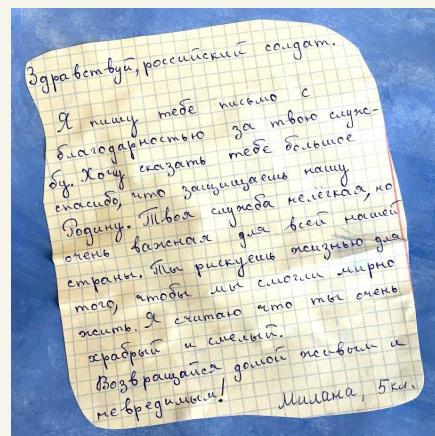 Здравствуй, российский солдат.
Я пишу тебе письмо с
благодарностью за твою служ-
бу. Хочу сказать тебе большое
спасибо, что защищаешь нашу
Родину. Твоя служба нелёгкая, но
очень важная для всей нашей
страны. Ты рискуешь жизнью для
того, чтобы мы смогли мирно
жить. Я считаю что ты очень
храбрый и смелый.
Возвращайся домой живым и
невредимым!
Милана, 5 кл.